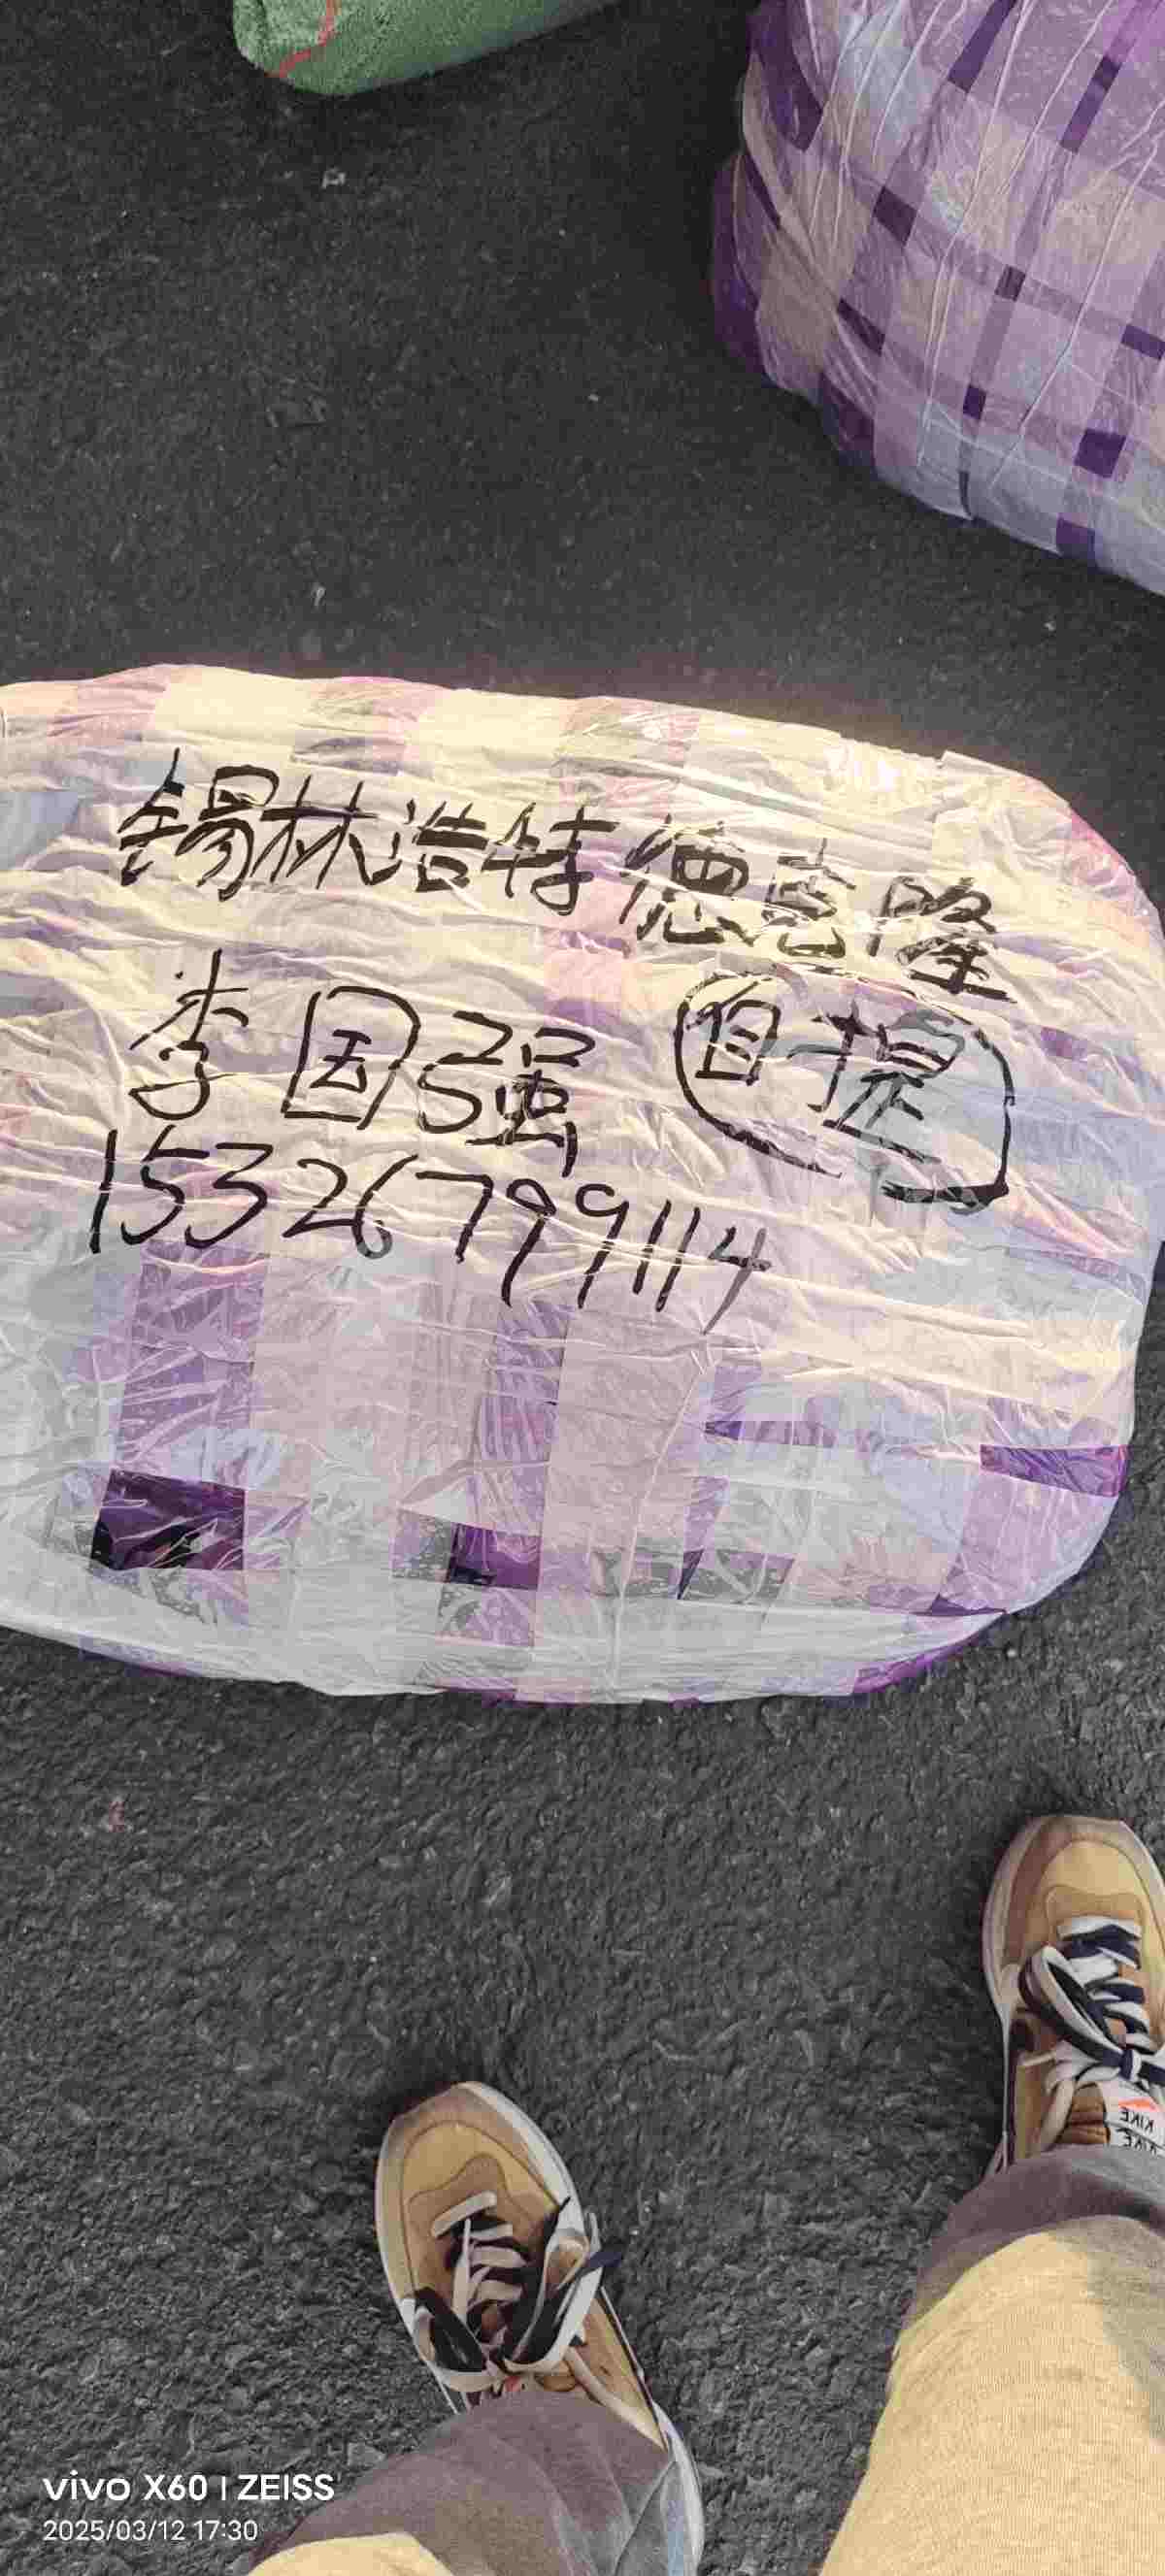 锡林浩特德惠隆
李国强 自提
15326799114
KIKE
KIKE
vivo X60 | ZEISS
2025/03/12 17:30